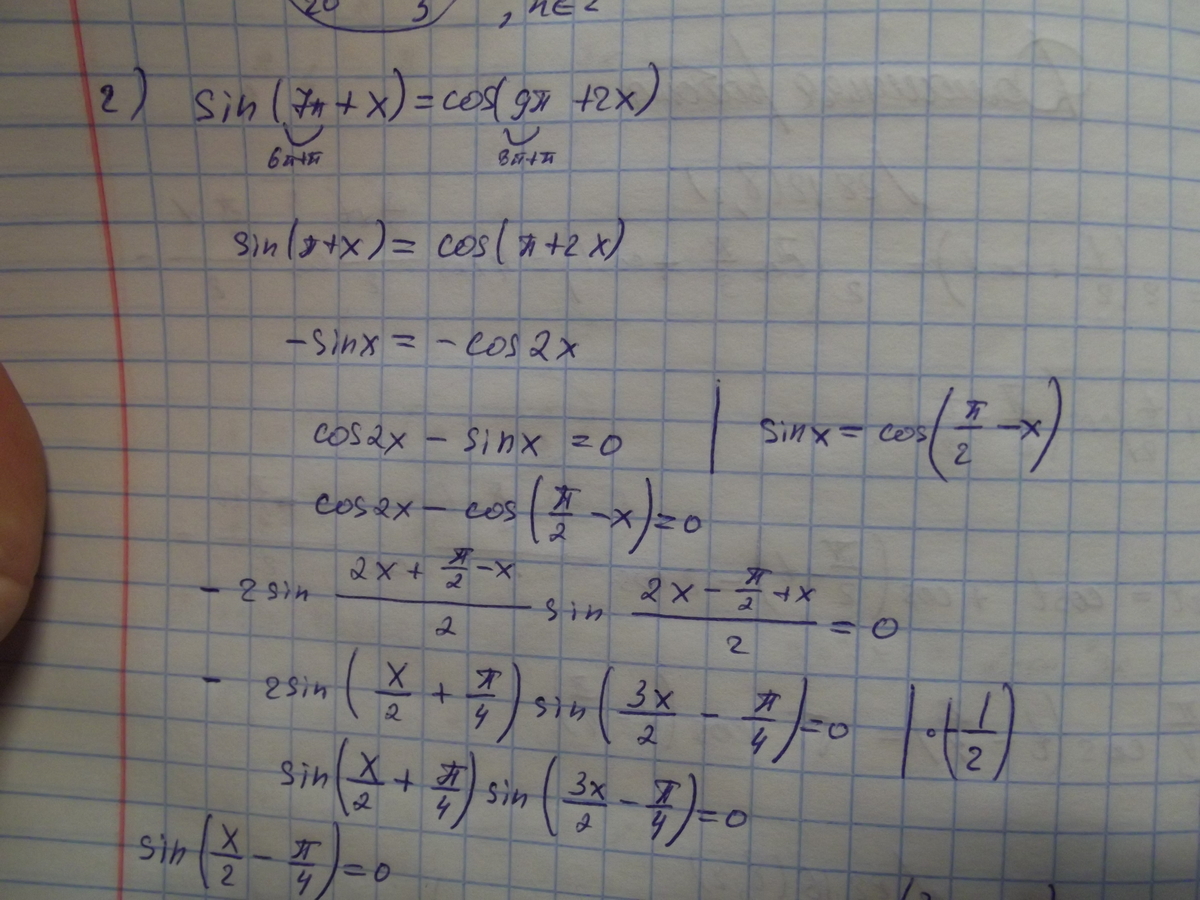 , n∈Z
2) sin(7π + x) = cos(9π + 2x)
6π+π 8π+π
sin(π+x) = cos(π+2x)
-sinx = -cos2x
cos2x - sinx = 0 | sinx = cos(π/2 - x)
cos2x - cos(π/2 - x) = 0
- 2sin (2x + π/2 - x)/2 sin (2x - π/2 + x)/2 = 0
- 2sin(x/2 + π/4) sin(3x/2 - π/4) = 0 | · (-1/2)
sin(x/2 + π/4) sin(3x/2 - π/4) = 0
sin(x/2 - π/4) = 0